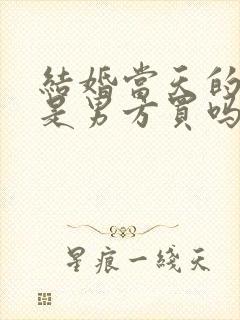 結婚當天的
是男方買嗎
星痕一綫天